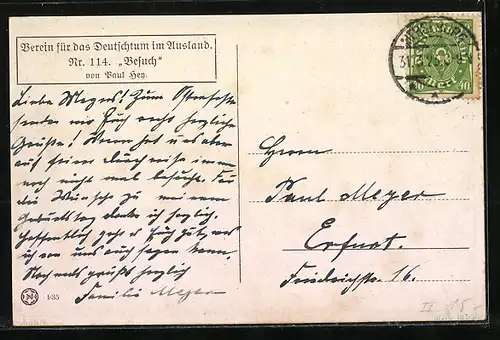 Verein für das Deutschtum im Ausland.
Nr. 114. „Besuch“
von Paul Hey.
Liebe Meyers! Zum Osterfeste
senden wir Euch recht herzliche
Grüße!
auf seiner Durchreise immer
noch nicht mal besucht. Für
die Wünsche zu meinem
Geburtstag danke ich herzlich.
Hoffentlich geht es Euch gut, was
ich von uns auch sagen kann.
Nochmals grüßt herzlich
Familie Meyer
Herrn
Paul Meyer
Erfurt.
Friedrichstr. 16.